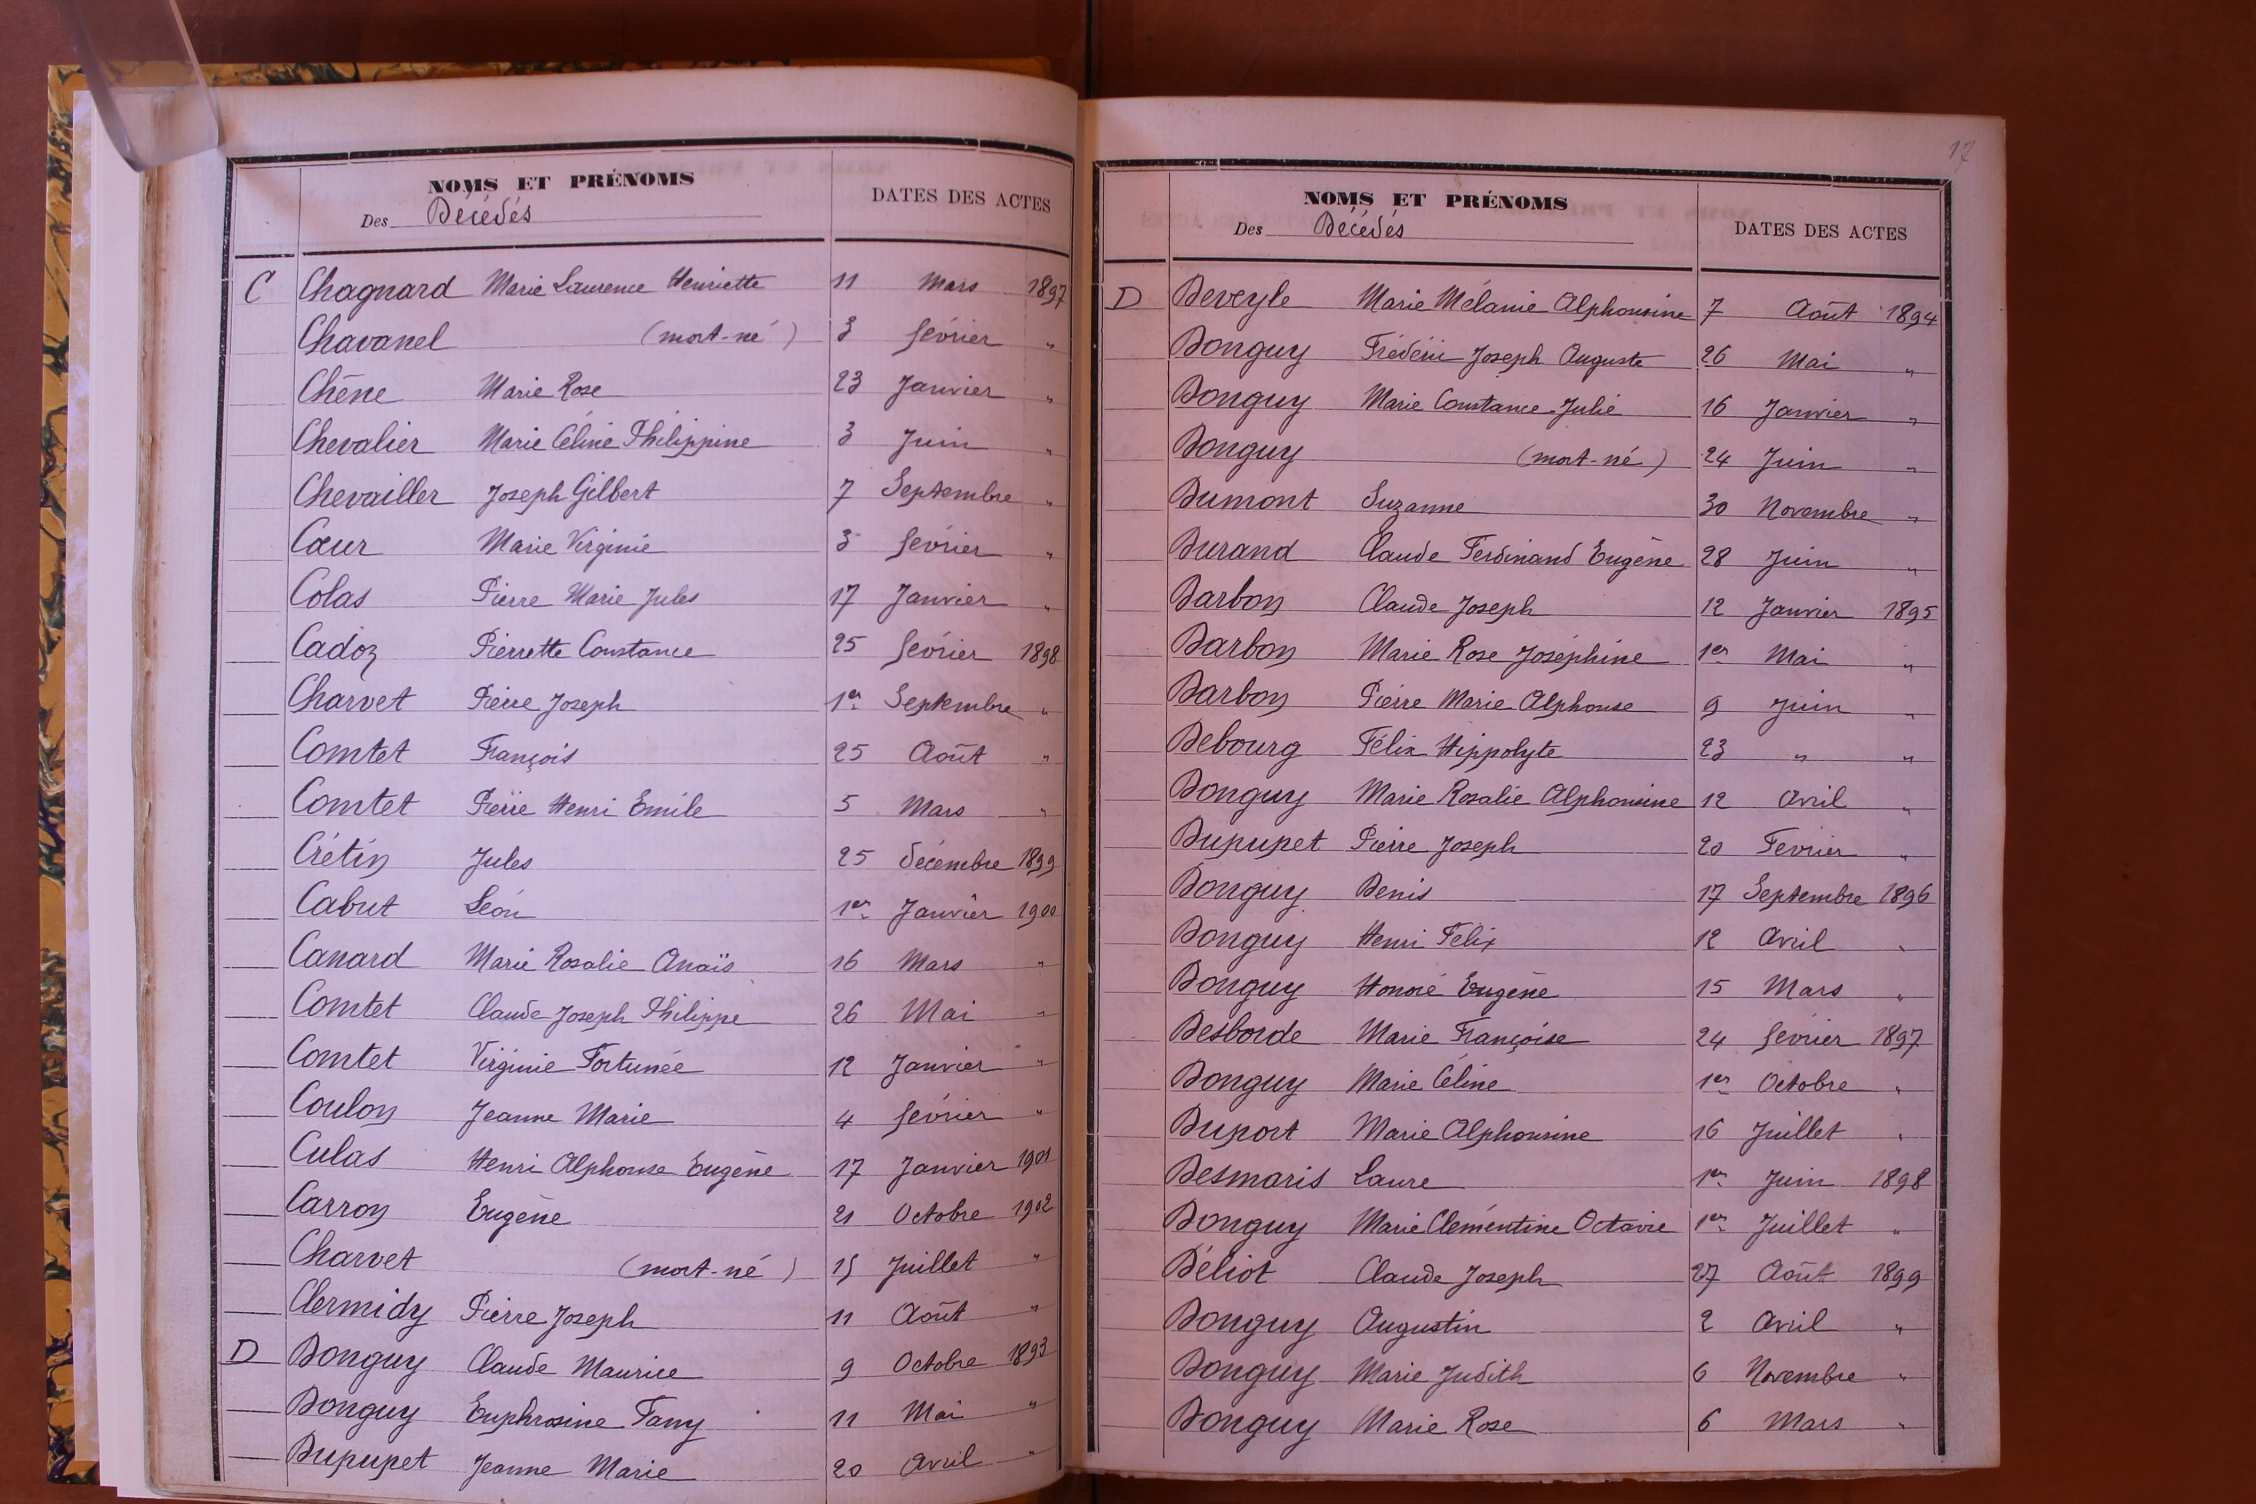 NOMS ET PRÉNOMS
Des Décédés
DATES DES ACTES
C Chagnard Marie Laurence Henriette 11 Mars 1897
Chavanel (mort-né) 3 février "
Chêne Marie Rose 23 Janvier "
Chevalier Marie Céline Philippine 3 Juin "
Chevailler Joseph Gilbert 7 Septembre "
Cœur Marie Virginie 3 février "
Colas Pierre Marie Jules 17 Janvier "
Cadoz Pierrette Constance 25 février 1898
Charvet Pierre Joseph 1er Septembre "
Comtet François 25 Août "
Comtet Pierre Henri Emile 5 Mars "
Crétin Jules 25 décembre 1899
Cabut Léon 1er Janvier 1900
Canard Marie Rosalie Anaïs 16 Mars "
Comtet Claude Joseph Philippe 26 Mai "
Comtet Virginie Fortunée 12 Janvier "
Coulon Jeanne Marie 4 février "
Culas Henri Alphonse Eugène 17 Janvier 1901
Carron Eugène 21 Octobre 1902
Charvet (mort-né) 15 Juillet "
Clermidy Pierre Joseph 11 Août "
D Donguy Claude Maurice 9 Octobre 1893
Donguy Euphrosine Fany 11 Mai "
Dupupet Jeanne Marie 20 Avril "
17
NOMS ET PRÉNOMS
Des Décédés
DATES DES ACTES
D Deveyle Marie Mélanie Alphonsine 7 Août 1894
Donguy Frédéric Joseph Auguste 26 Mai "
Donguy Marie Constance Julie 16 Janvier "
Donguy (mort-né) 24 Juin "
Dumont Suzanne 30 Novembre "
Durand Claude Ferdinand Eugène 28 Juin "
Darbon Claude Joseph 12 Janvier 1895
Darbon Marie Rose Joséphine 1er Mai "
Darbon Pierre Marie Alphonse 9 Juin "
Debourg Félix Hippolyte 23 " "
Donguy Marie Rosalie Alphonsine 12 Avril "
Dupupet Pierre Joseph 20 Février "
Donguy Denis 17 Septembre 1896
Donguy Henri Félix 12 Avril "
Donguy Honoré Eugène 15 Mars "
Desborde Marie Françoise 24 février 1897
Donguy Marie Céline 1er Octobre "
Duport Marie Alphonsine 16 Juillet "
Desmaris Laure 1er Juin 1898
Donguy Marie Clémentine Octavie 1er Juillet "
Déliot Claude Joseph 27 Août 1899
Donguy Augustin 2 Avril "
Donguy Marie Judith 6 Novembre "
Donguy Marie Rose 6 Mars "